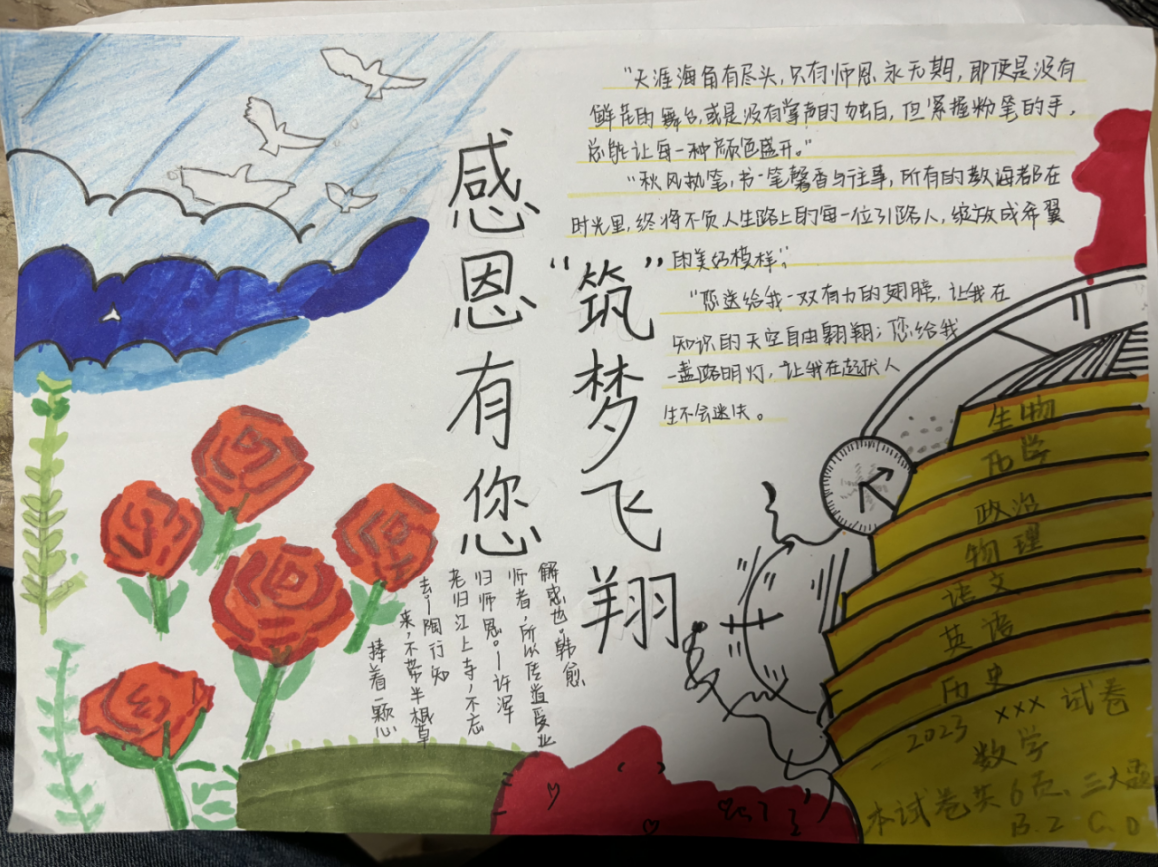 感恩有您
“筑”梦飞翔
“天涯海角有尽头，只有师恩永无期，即便是没有
鲜花的舞台，或是没有掌声的独白，但紧握粉笔的手，
总能让每一种颜色盛开。”
“秋风执笔，书一笔馨香与往事，所有的教诲都在
时光里，终将不负人生路上的每一位引路人，绽放成希翼
的美好模样”；
“您送给我一双有力的翅膀，让我在
知识的天空自由翱翔；您给我
一盏路明灯，让我在起伏人
生不会迷失。
师者，所以传道受业
解惑也。韩愈
归师恩。一许浑
老归江上寺，不忘
去一陶行知
来，不带半根草
捧着一颗心
生物
历学
政治
物理
语文
英语
历史
2023 xxx 试卷
数学
本试卷共6页、三大题
B.2 C.0